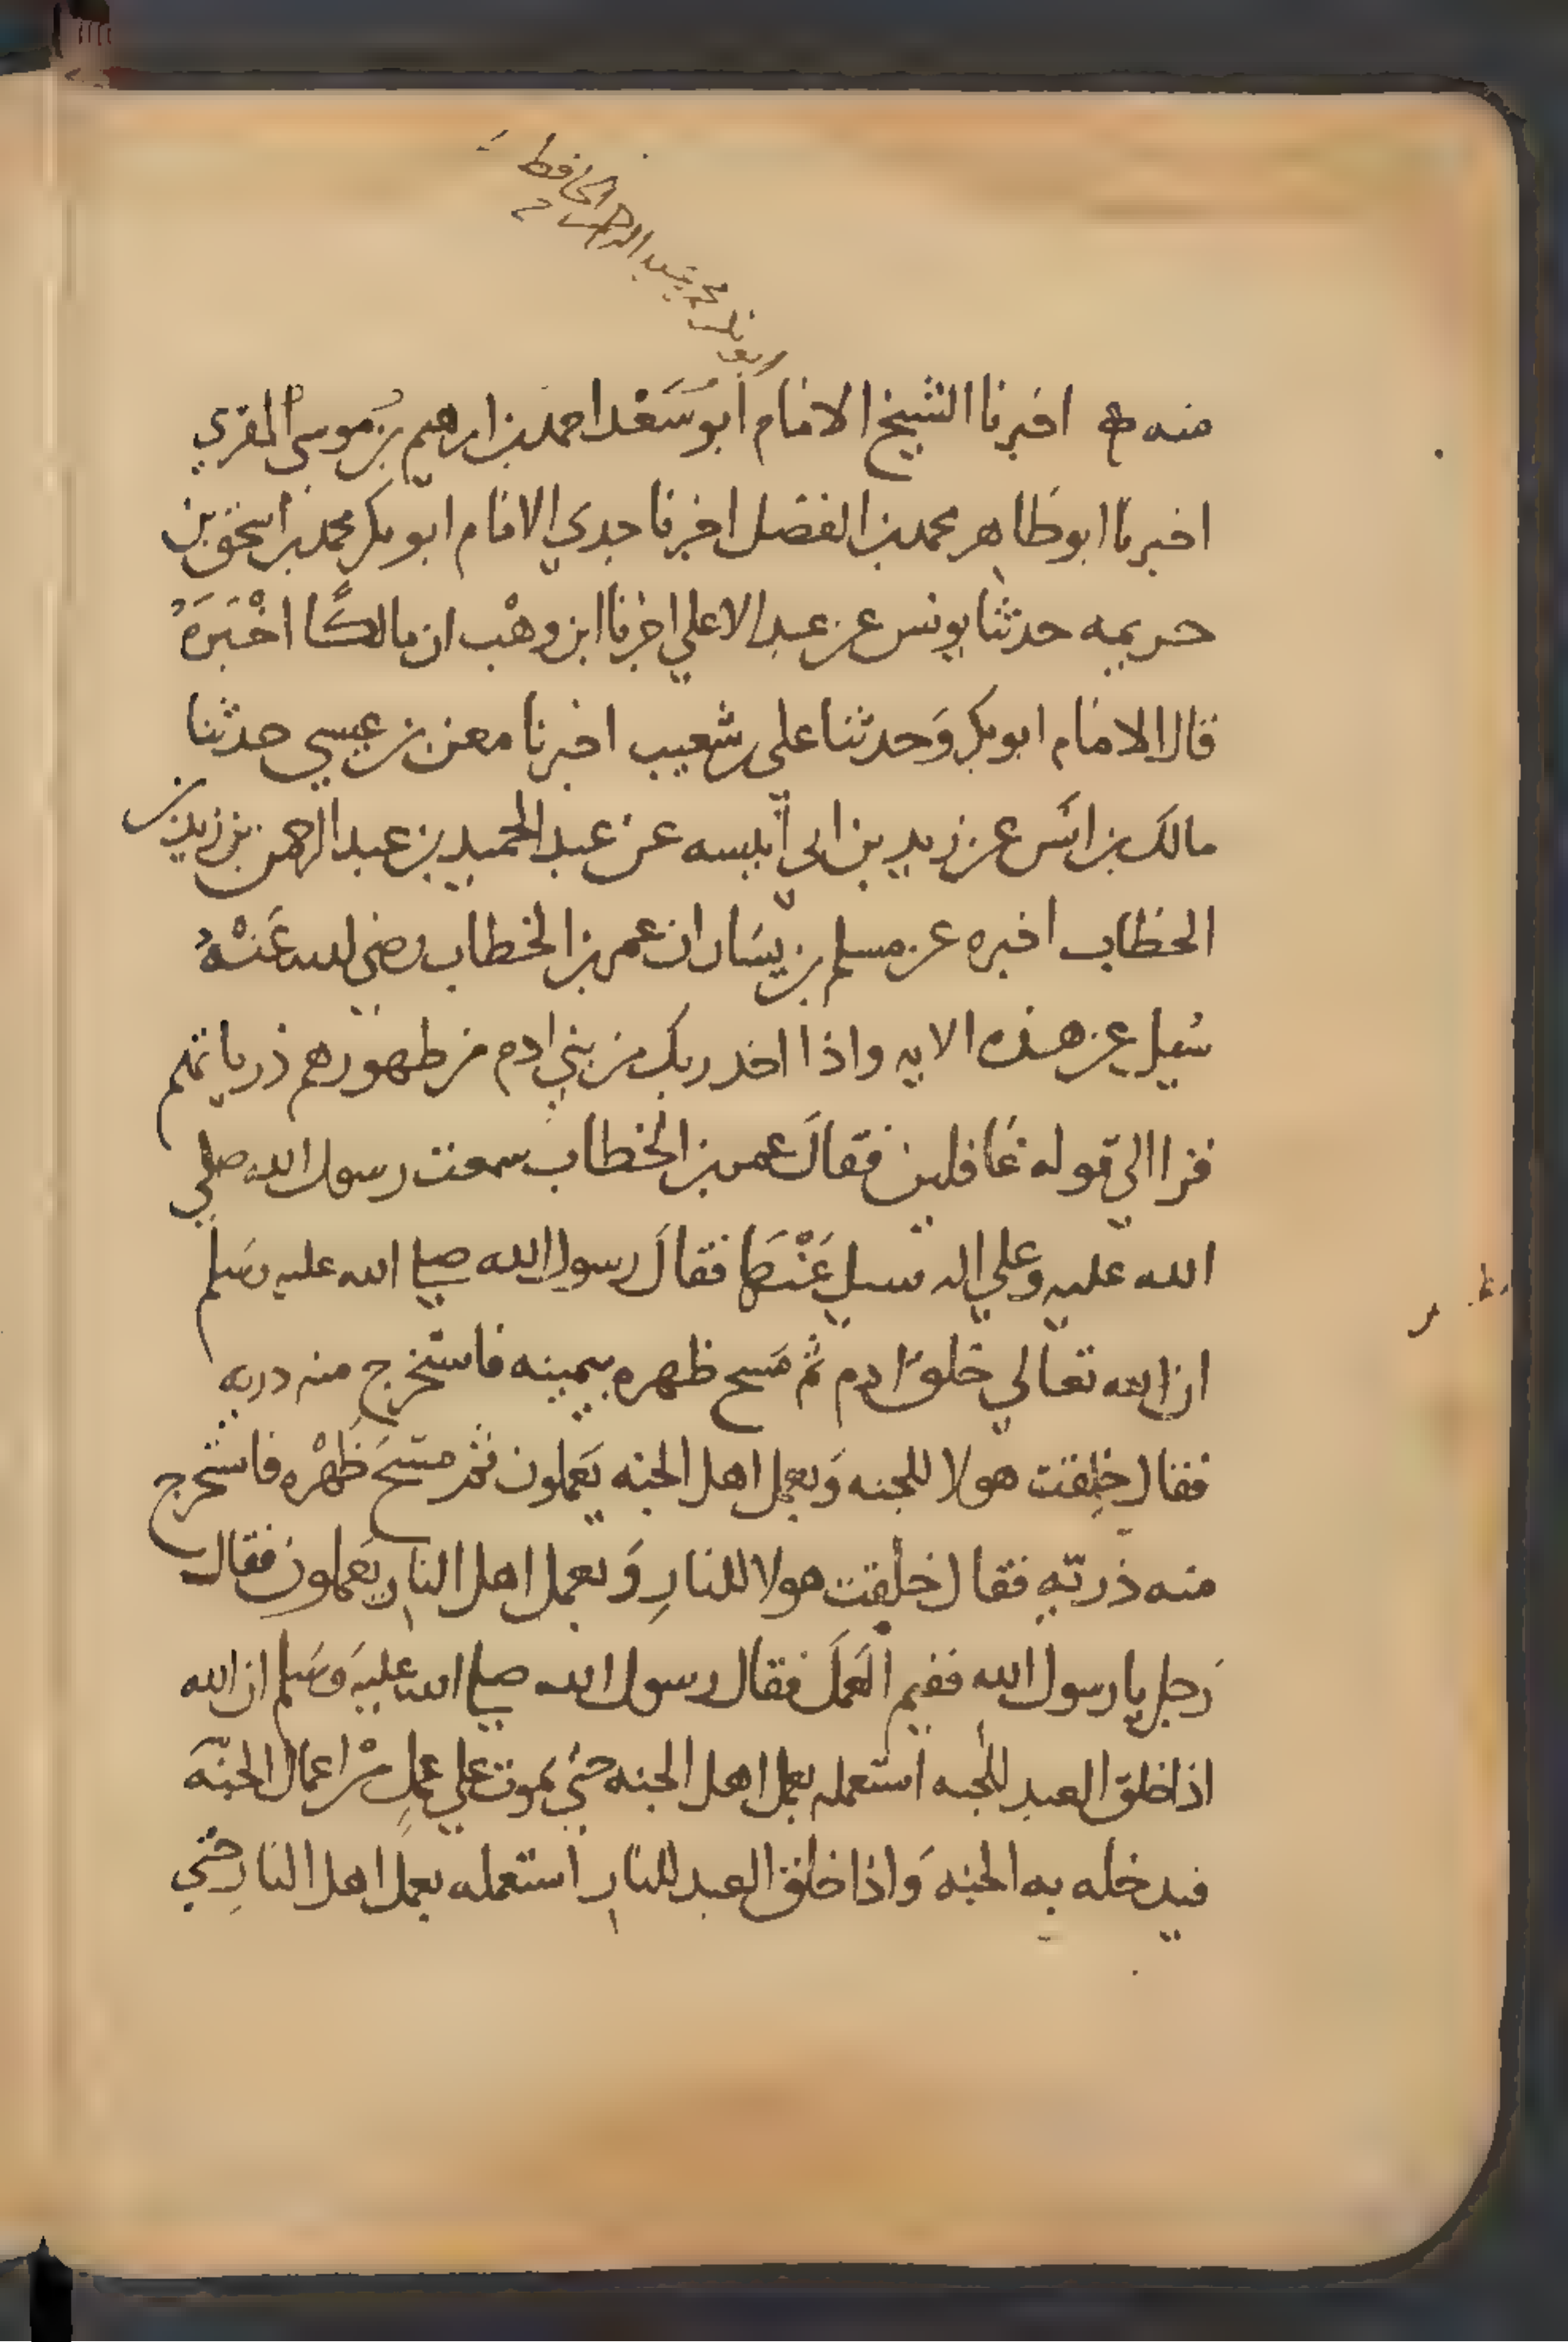 محمد بن عبد الرحمن الحافظ
منه اخبرنا الشيخ الامام أبو سَعْد احمد بن ابرهيم بن موسى المقري
اخبرنا ابو طاهر محمد بن الفضل اخبرنا جدي الامام ابو بكر محمد بن اسحق بن
خزيمه حدثنا يونس عن عبد الاعلي اخبرنا ابن وهْب ان مالكًا اخْبَرَهُ
قال الامام ابو بكر وَحدثنا علي بن شعيب اخبرنا معن بن عيسي حدثنا
مالك بن انس عن زيد بن ابي أنيسه عن عبد الحميد بن عبد الرحمن بن زيد بن
الخطاب اخبره عن مسلم بن يسَار ان عمر بن الخطاب رضي الله عَنْهُ
سُيل عن هذه الايه واذا اخذ ربك من بني ادم من ظهورهم ذرياتهم
قرا الي قوله غافلين فقالَ عمر بن الخطاب سمعت رسول الله صلي
الله عليه وعلي اله سيل عَنْهَا فقالَ رسول الله صلي الله عليه وسَلم
ان الله تعالي خلقَ ادم ثم مَسح ظهره بيمينه فاستخرج منه ذريه
فقال خلقت هولا للجنه وَبعمل اهل الجنه يَعملون ثم مسَحَ ظَهْره فاستخرج
منه ذريّه فقال خلقت هولا للنارِ وَبعمل اهل النارِ يَعملون فقال
رَجل يا رسول الله ففيم العَمَلَ فقال رسول الله صلي الله عليهَ وسَلم ان الله
اذا خلق العبد للجنه استعمله بعمل اهل الجنه حتي يموت علي عملِ منْ اعمال الجنّه
فيدخله به الجنه وَاذا خلق العبد للنار استعمله بعمل اهل النارِ حتي